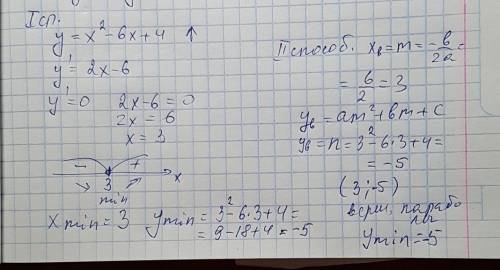 I сп.
y = x² - 6x + 4 ↑
y' = 2x - 6
y' = 0 2x - 6 = 0
2x = 6
x = 3
- + 
3 x
min
x min = 3 y min = 3² - 6·3 + 4 =
= 9 - 18 + 4 = -5
II способ. x₀ = m = -b/2a =
= 6/2 = 3
y₀ = am² + bm + c
y₀ = n = 3² - 6·3 + 4 =
= -5
(3; -5)
верш. парабо
лы
y min = -5